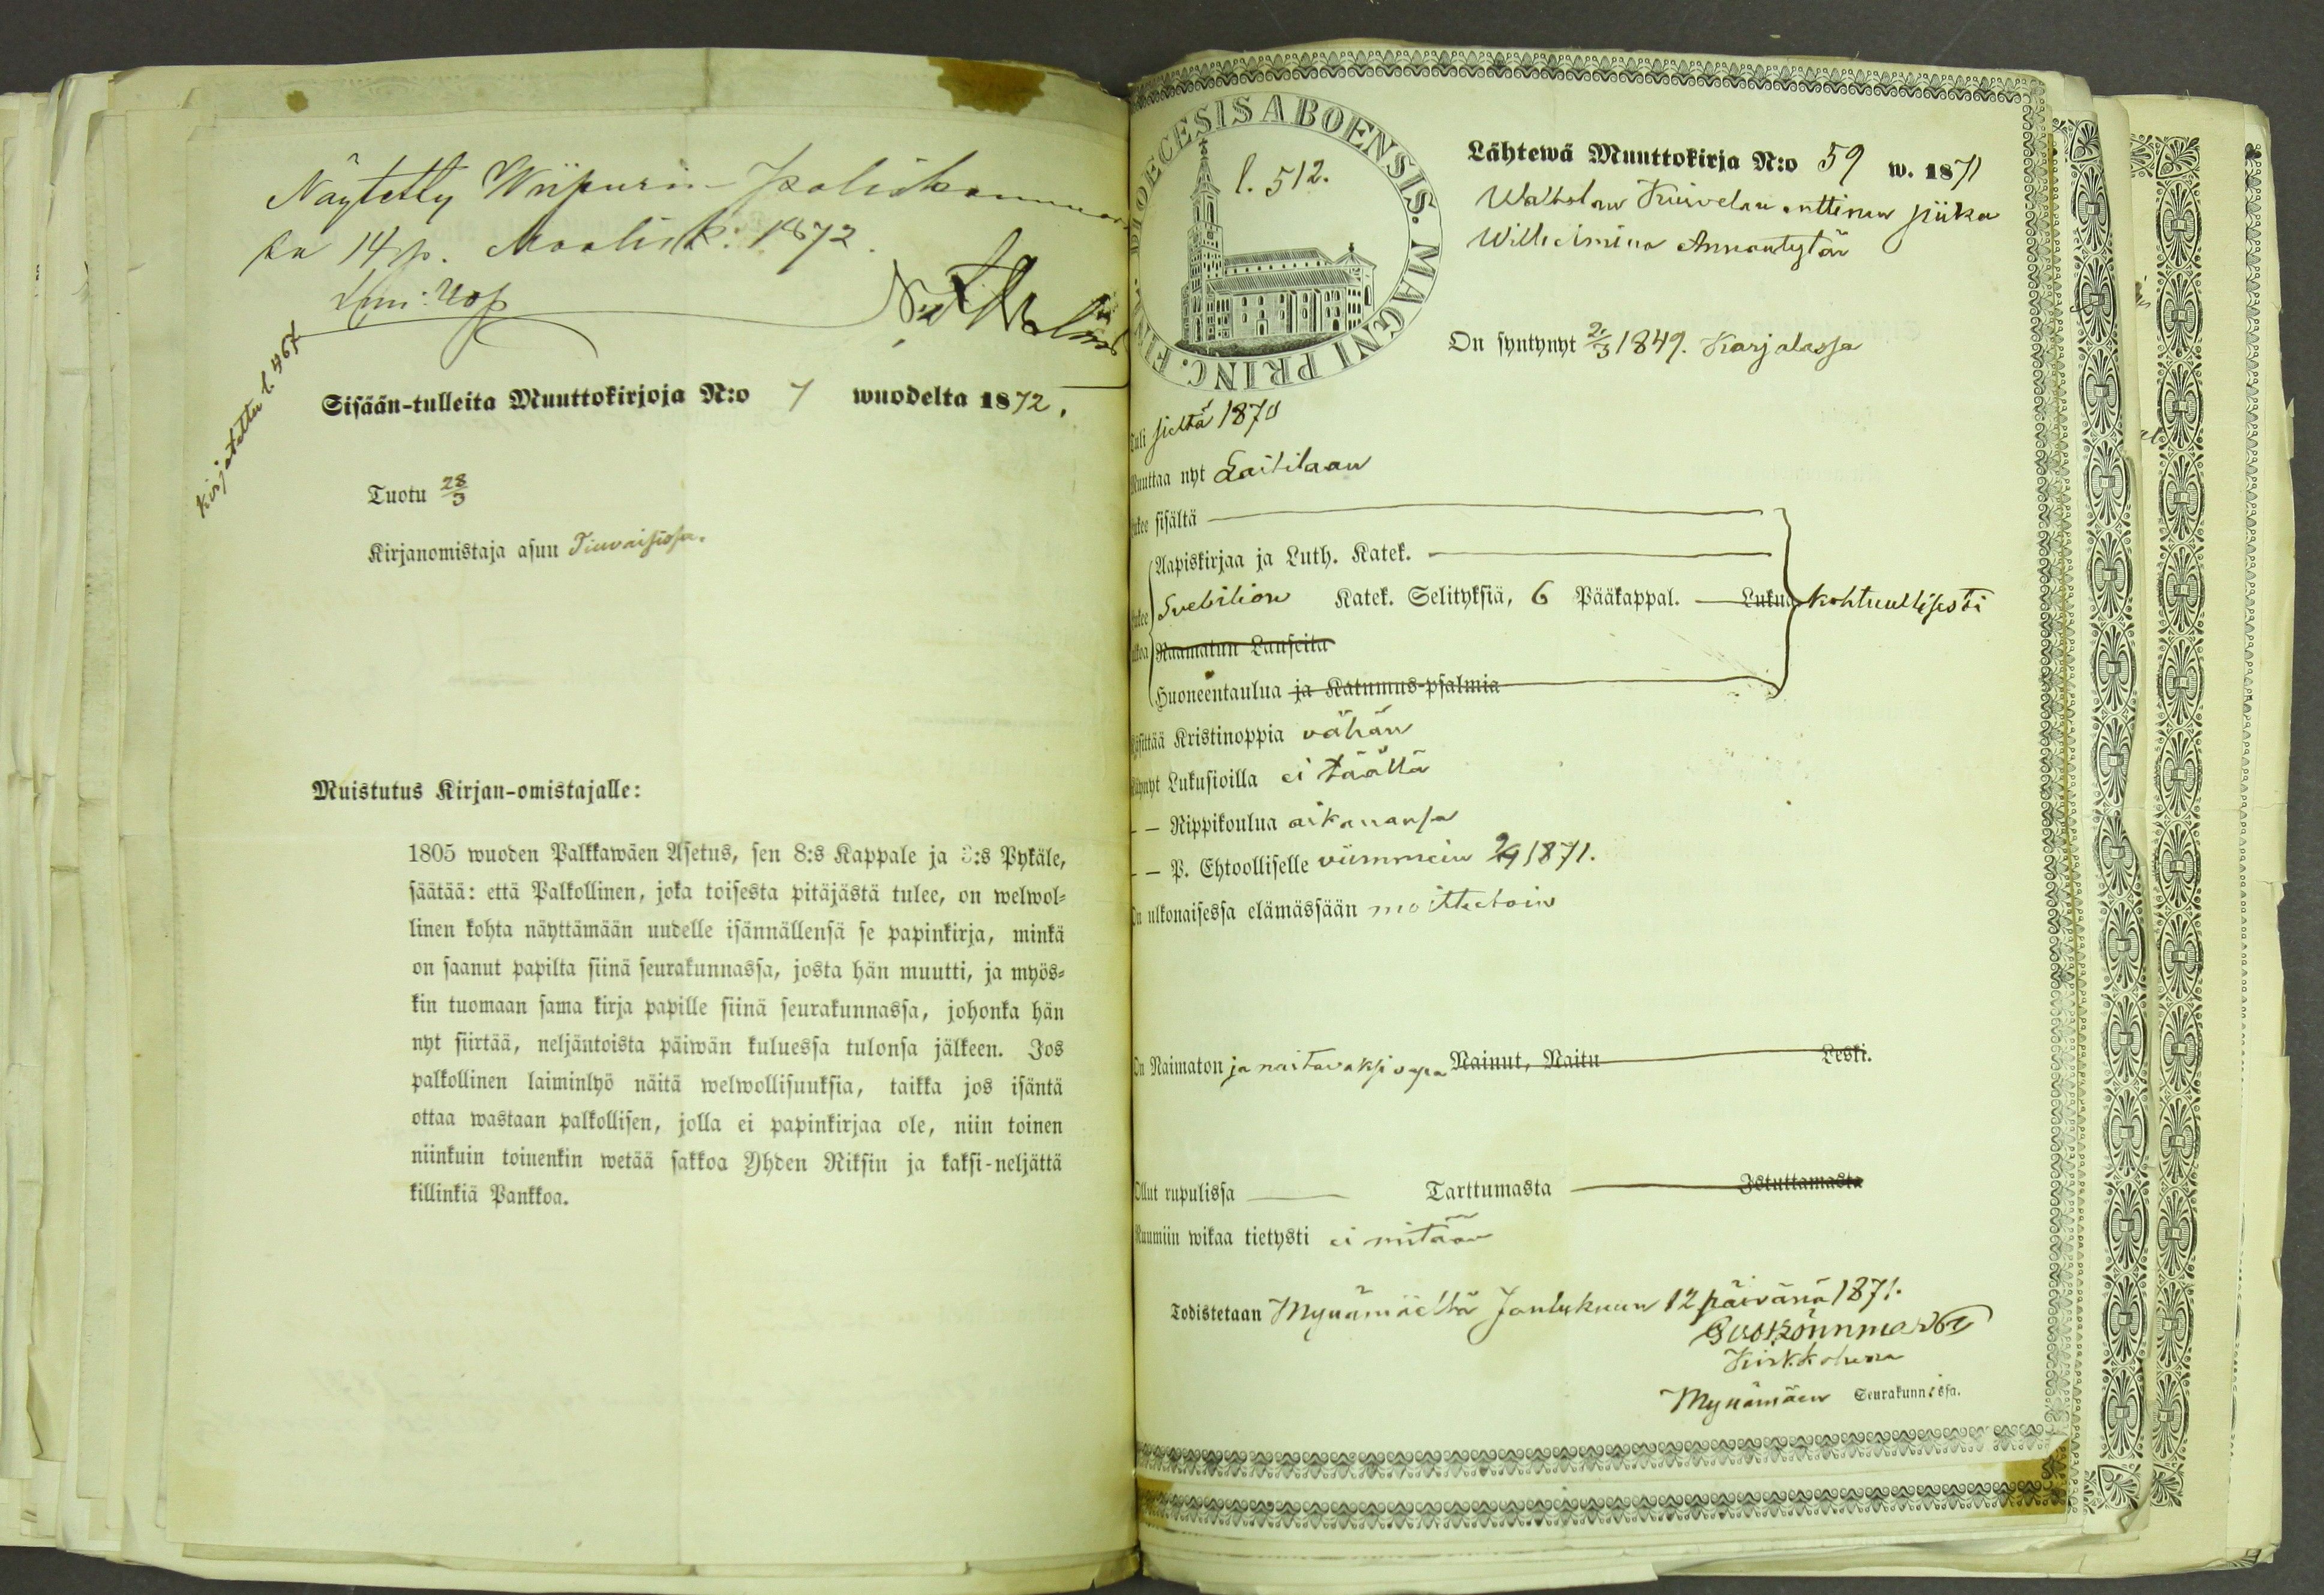 Näytetty Wiipurin Poliskammar.
sa 14 p. Maalisk: 1872.
Kirjatettu l. 467
Sisään-tulleita Muuttokirjoja N:o 7 wuodelta 1872.
Tuotu 28/3
Kirjanomistaja asuu
Muistutus Kirjan-omistajalle:
1805 wuoden Palkkawäen Asetus, sen 8:s Kappale ja 3:s Pykäle,
säätää: että Palkollinen, joka toisesta pitäjästä tulee, on welwol-
linen kohta näyttämään uudelle isännällensä se papinkirja, minkä
on saanut papilta siinä seurakunnassa, josta hän muutti, ja myös-
kin tuomaan sama kirja papille siinä seurakunnassa, johonka hän
nyt siirtää, neljäntoista päiwän kuluessa tulonsa jälkeen. Jos
palkollinen laiminlyö näitä welwollisuuksia, taikka jos isäntä
ottaa wastaan palkollisen, jolla ei papinkirjaa ole, niin toinen
niinkuin toinenkin wetää sakkoa Yhden Riksin ja kaksi-neljättä
killinkiä Pankkoa.
DIOECESIS ABOENSIS. MAGNI PRINC. FINL.
l. 512.
Lähtewä Muuttokirja N:o 59 w. 1871
piika
Wilhelmina Annantytär
On syntynyt 2/3 1849. Karjalassa
Tuli sieltä 1870
Muuttaa nyt Laitilaan
Lukee sisältä
Aapiskirjaa ja Luth. Katek.
Lukee Svebilion Katek. Selityksiä, 6 Pääkappal. Lukua kohtuullisesti
ulkoa Raamatun Lauseita
Huoneentaulua ja Katumus-psalmia
Käsittää Kristinoppia vähän
Käynyt Lukusioilla ei täällä
— — Rippikoulua aikanansa
— — P. Ehtoolliselle viimmein 1871.
On ulkonaisessa elämässään moittectoin
On Naimaton ja naitavaksi vapa Nainut, Naitu Leski.
Ollut rupulissa Tarttumasta Istuttamasta
Ruumiin wikaa tietysti ei mitään
Todistetaan Mynämäeltä Joulukuun 12 päivänä 1871.
Kirkkoherra
Mynämäen Seurakunnissa.